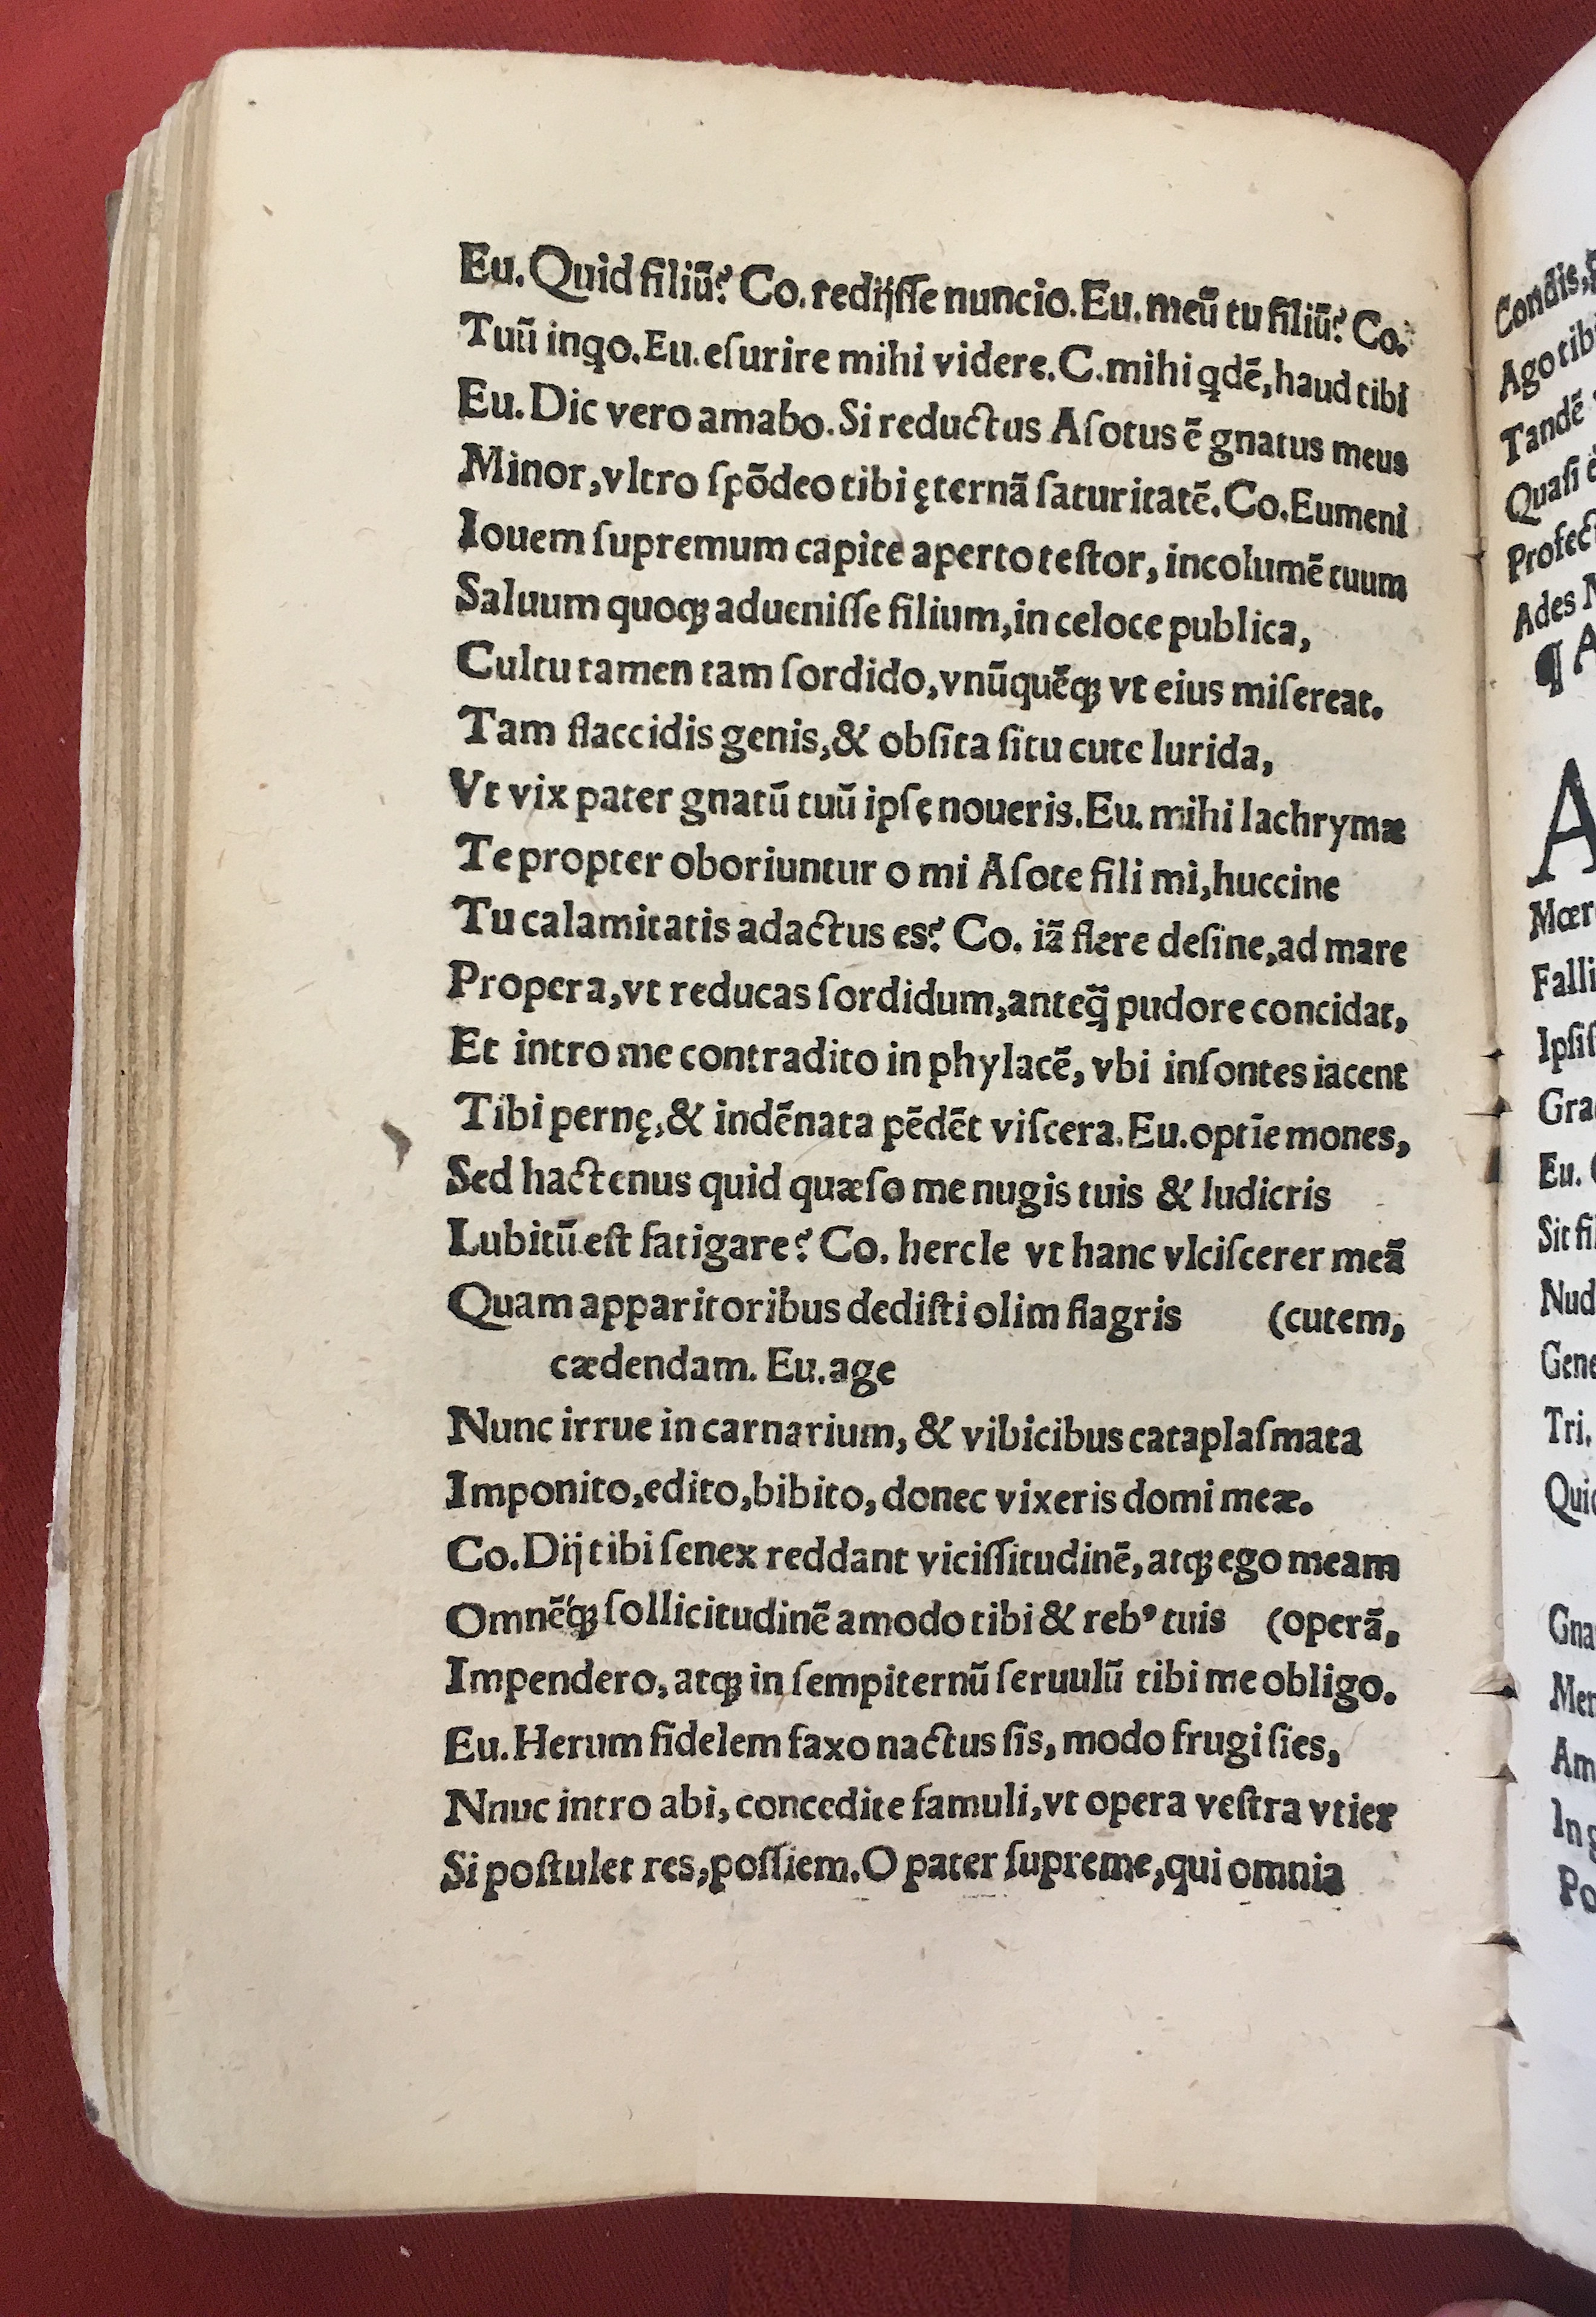 Eu. Quid filiū? Co. redijſſe nuncio. Eu. meū tu filiū? Co.
Tuū inqo. Eu. eſurire mihi videre. C. mihi qdē, haud tibi
Eu. Dic vero amabo. Si reductus Aſotus ē gnatus meus
Minor, vltro ſpōdeo tibi ęternā ſaturitatē. Co. Eumeni
Iouem ſupremum capite aperto teſtor, incolumē tuum
Saluum quoqꝫ adueniſſe filium, in celoce publica,
Cultu tamen tam ſordido, vnūquēqꝫ vt eius miſereat.
Tam flaccidis genis, & obſita ſitu cute lurida,
Vt vix pater gnatū tuū ipſę noueris. Eu. mihi lachrymæ
Te propter oboriuntur o mi Aſote fili mi, huccine
Tu calamitatis adactus es? Co. iā flere deſine, ad mare
Propera, vt reducas ſordidum, anteq̄ pudore concidat,
Et intro me contradito in phylacē, vbi inſontes iacent
Tibi pernę, & indēnata pēdēt viſcera. Eu. optīe mones,
Sed hactenus quid quæſo me nugis tuis & ludicris
Lubitū eſt fatigare? Co. hercle vt hanc vlciſcerer meā
Quam apparitoribus dediſti olim flagris (cutem,
cædendam. Eu. age
Nunc irrue in carnarium, & vibicibus cataplaſmata
Imponito, edito, bibito, donec vixeris domi meæ.
Co. Dij tibi ſenex reddant viciſſitudinē, atqꝫ ego meam
Omnēqꝫ ſollicitudinē amodo tibi & rebꝰ tuis (operā,
Impendero, atqꝫ in ſempiternū ſeruulū tibi me obligo.
Eu. Herum fidelem faxo nactus ſis, modo frugi ſies,
Nnuc intro abi, concedite famuli, vt opera veſtra vtier
Si poſtulet res, poſſiem. O pater ſupreme, qui omnia
Condis,
Ago tibi
Tandē
Quaſi
Profect
Ades
¶ A
A
Mœr
Falli
Ipſiſ
Gra
Eu.
Sit fi
Nud
Gene
Tri.
Quic
Gna
Mer
Am
In g
Po